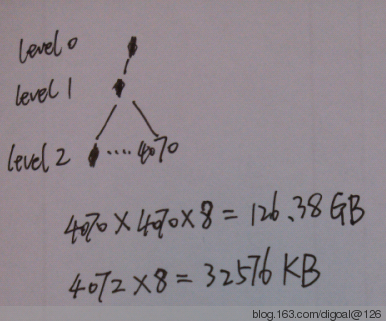 level 0
level 1
level 2 ..... 4070
4070 × 4070 × 8 = 126.38 GB
4072 × 8 = 32576 KB
blog.163.com/digoal@126